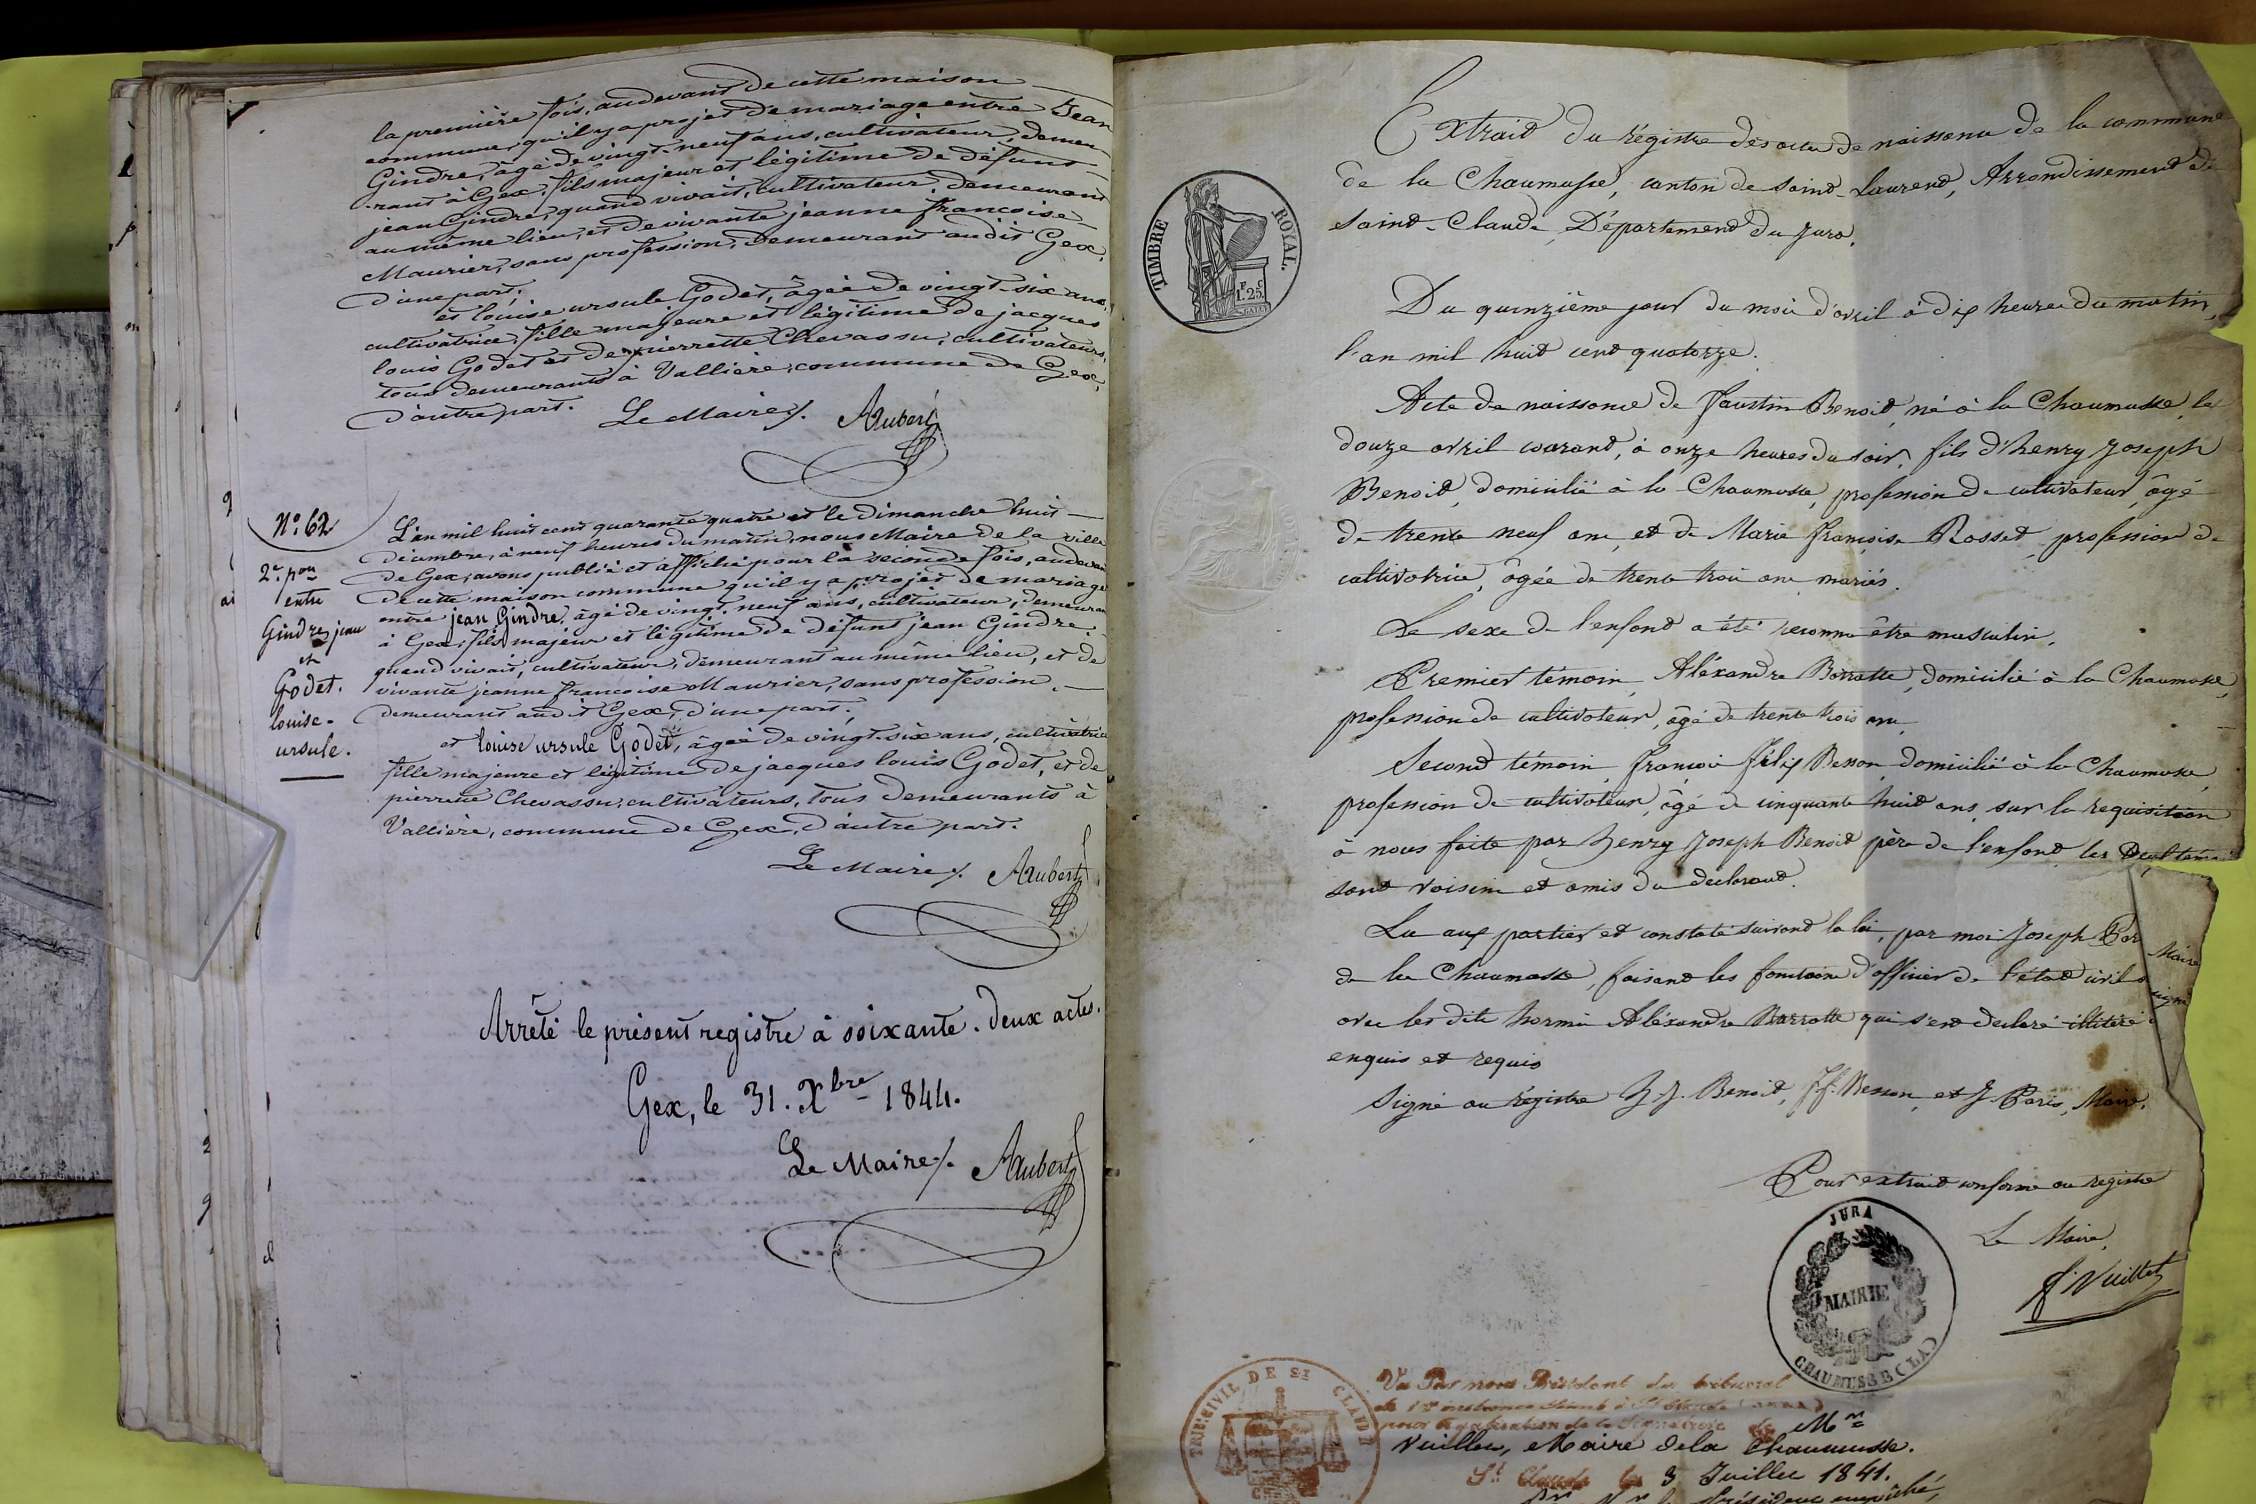 la première fois, audevant de cette maison
commune, qu'il y a projet de mariage entre Jean
Gindre, âgé de vingt-neuf ans, cultivateur, demeu-
rant à Gex, fils majeur et légitime de défunt
jean Gindre, quand vivait, cultivateur, demeurant
au même lieu, et de vivante jeanne françoise
Maurier, sans profession, demeurant audit Gex,
d'une part;
et louise ursule Godet, âgée de vingt-six ans,
cultivatrice, fille majeure et légitime de jacques
louis Godet et de pierrette Chevassu, cultivateurs,
tous demeurants à Vallière, commune de Gex,
d'autre part.
Le Maire /. Aubert
N.° 62
2.e pon
entre
Gindre, jean
et
Godet.
louise-
ursule.
L'an mil huit cent quarante quatre et le dimanche huit
décembre, à neuf heures du matin, nous Maire de la ville
de Gex, avons publié et affiché pour la seconde fois, audevant
de cette maison commune qu'il y a projet de mariage
entre jean Gindre, âgé de vingt-neuf ans, cultivateur, demeurant
à Gex, fils majeur et légitime de défunt jean Gindre,
quand vivait, cultivateur, demeurant au même lieu, et de
vivante jeanne françoise Maurier, sans profession,
demeurant audit Gex, d'une part;
et louise ursule Godet, âgée de vingt-six ans, cultivatrice
fille majeure et légitime de jacques louis Godet, et de
pierrette Chevassu, cultivateurs, tous demeurants à
Vallière, commune de Gex, d'autre part.
Le Maire /. Aubert
Arrêté le présent registre à soixante-deux actes.
Gex, le 31. Xbre 1844.
Le Maire /. Aubert
Extrait du régistre des actes de naissance de la commune
de la Chaumusse, canton de Saint-Laurent, Arrondissement de
Saint-Claude, Département du Jura.
TIMBRE ROYAL.
F. C.
1.25
Du quinzième jour du mois d'avril à dix heures du matin,
l'an mil huit cent quatorze.
Acte de naissance de Faustin Benoit, né à la Chaumusse, le
douze avril courant, à onze heures du soir, fils d'henry Joseph
Benoit, domicilié à la Chaumusse, profession de cultivateur, âgé
de trente neuf ans, et de Marie françoise Rosset, profession de
cultivatrice, âgée de trente trois ans mariés.
Le sexe de l'enfant a été reconnu être masculin.
Premier témoin, Aléxandre Barratte, domicilié à la Chaumusse,
profession de cultivateur, âgé de trente trois ans.
Second témoin, françois félix Besson, domicilié à la Chaumusse,
profession de cultivateur, âgé de cinquante huit ans, sur la requisition
à nous faite par henry Joseph Benoit père de l'enfant, les
sont voisins et amis du déclarant.
Lu aux parties et constaté suivant la loi, par moi Joseph Maire
de la Chaumusse, faisant les fonctions d'officier de l'état civil signé
avec les dits hormis Aléxandre Barratte qui s'est déclaré illitéré
enquis et requis
Signé au régistre h. J. Benoit, f f. Besson, et J. Paris, Maire.
Pour extrait conforme au registre
Le Maire,
Vuillet
JURA
MAIRIE
CHAUMUSSE (LA)
TRIB. CIVIL DE St CLAUDE
Vu Par nous Président du tribunal
de 1re instance séant à St Claude (JURA)
pour légalisation de la Signature de Mr
Vuillet, Maire de la Chaumusse.
St Claude le 3 Juillet 1841.
Président empêché,